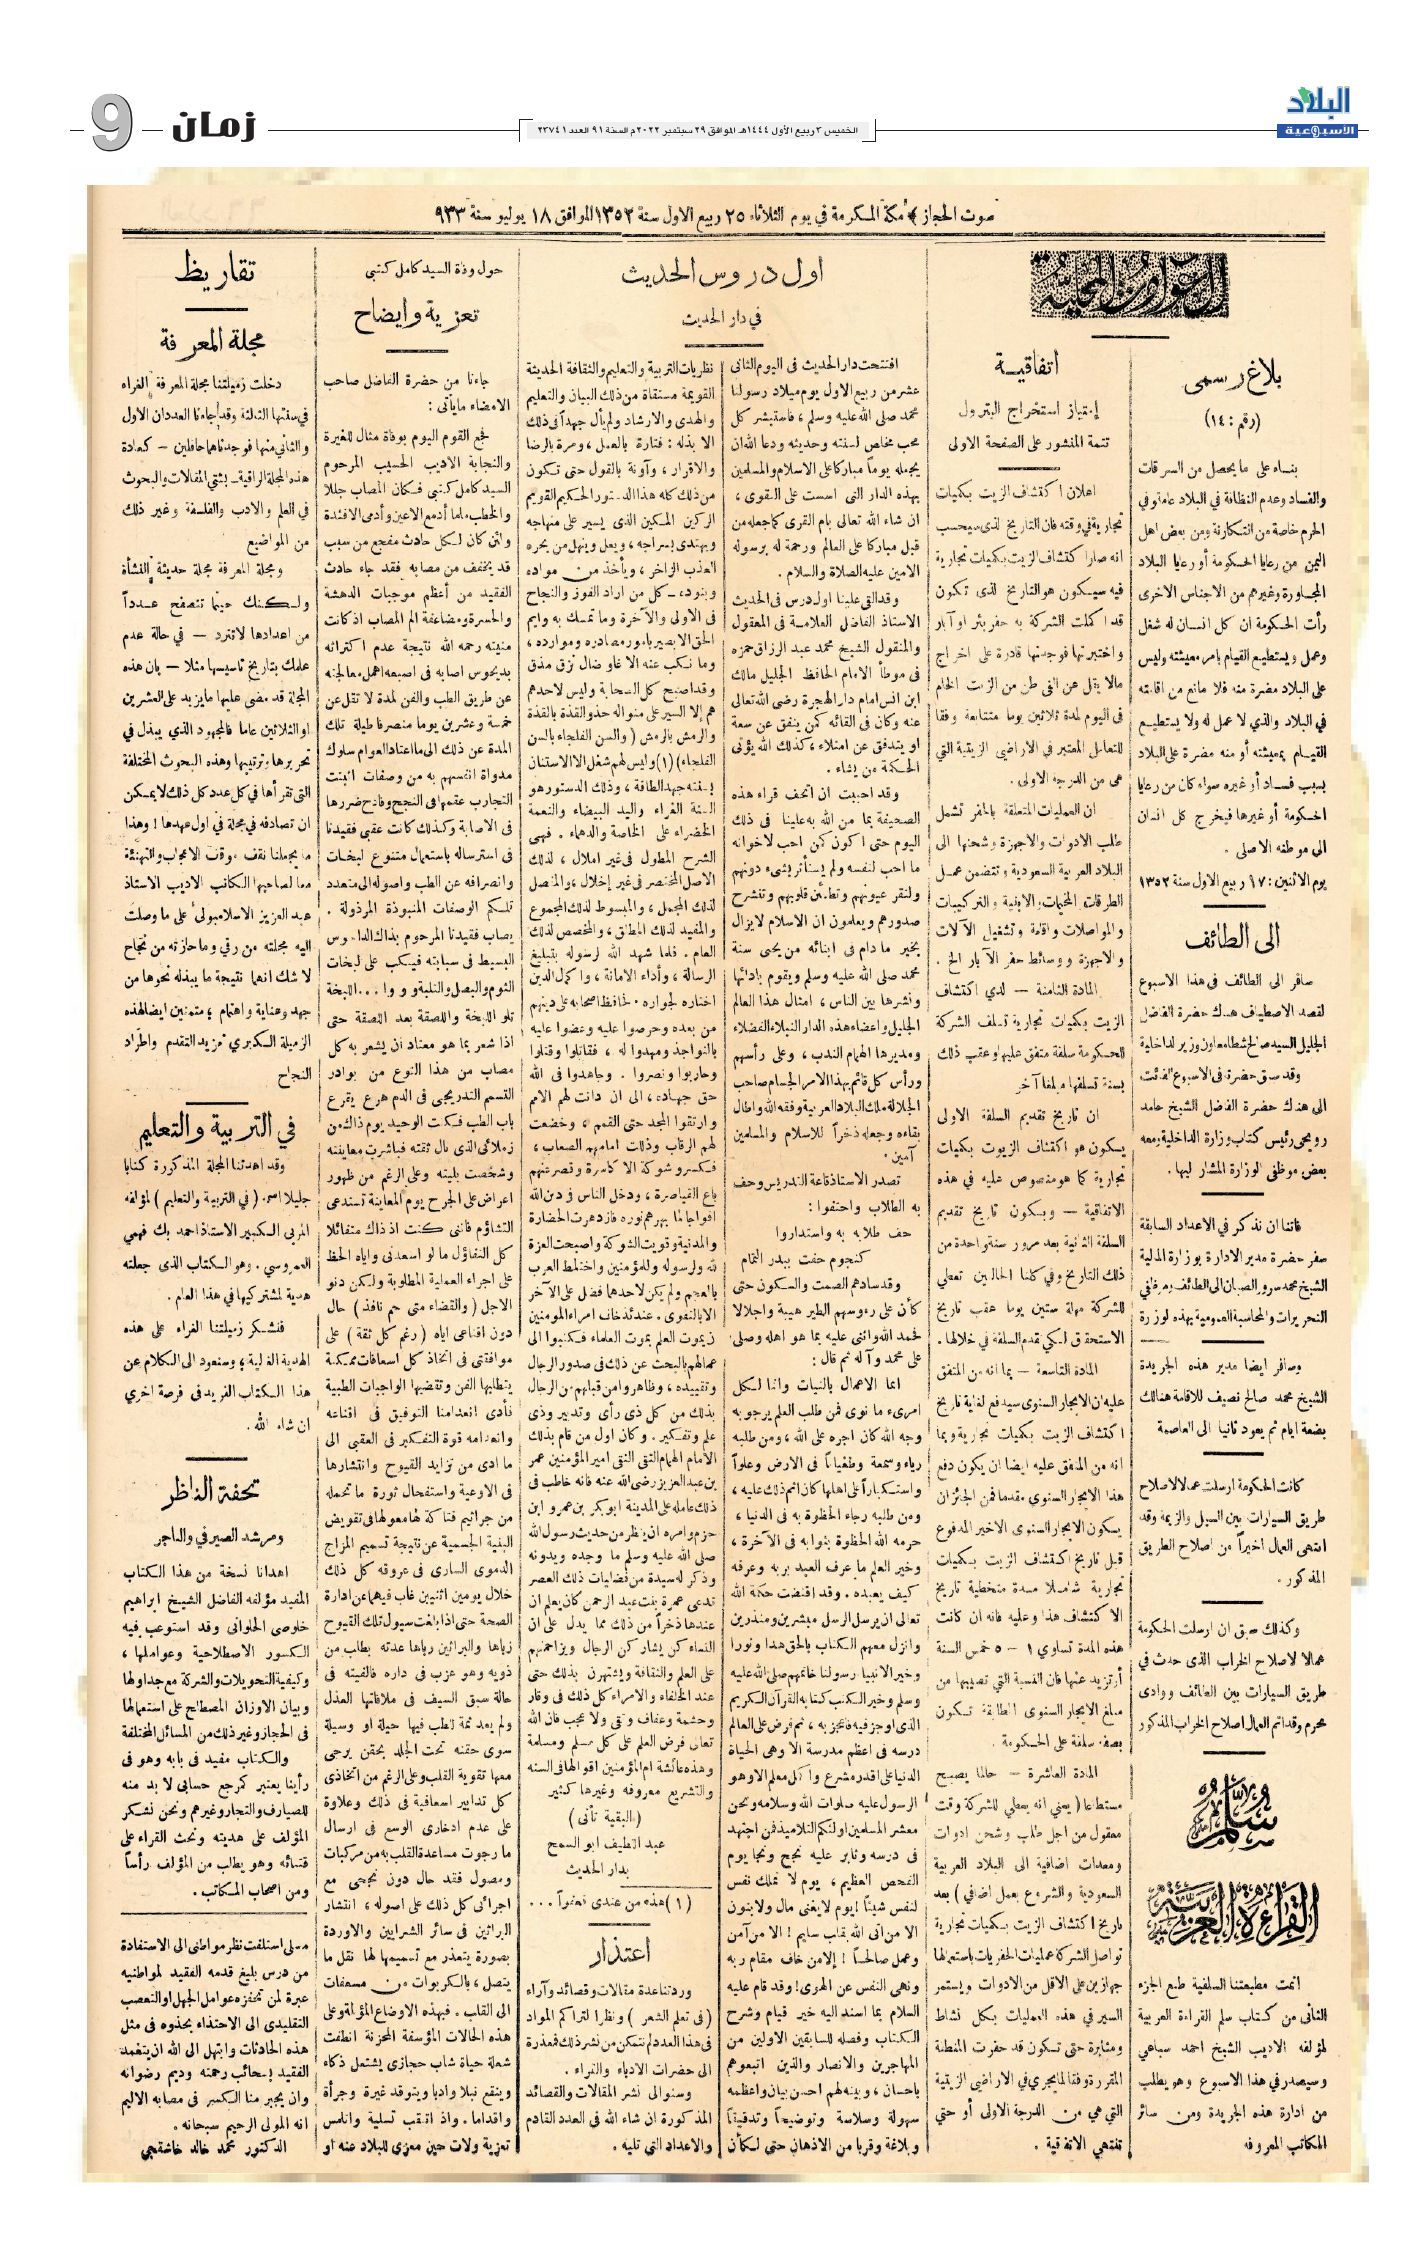 البلاد
الأسبوعية
الخميس ٣ ربيع الأول ١٤٤٤هـ الموافق ٢٩ سبتمبر ٢٠٢٢م السنة ٩١ العدد ٢٣٧٤١
زمان
9
صوت الحجاز ﴾ مكة المكرمة في يوم الثلاثاء ٢٥ ربيع الاول سنة ١٣٥٢ الموافق ١٨ يوليو سنة ٩٣٣
بلاغ رسمى
(رقم : ١٤)
بناء على ما يحصل من السرقات
والفساد وعدم النظافة في البلاد عامة وفي
الحرم خاصة من التكارنة ومن بعض اهل
اليمن من رعايا الحكومة أو رعايا البلاد
المجاورة وغيرهم من الاجناس الاخرى
رأت الحكومة ان كل انسان له شغل
وعمل ويستطيع القيام بامر معيشته وليس
على البلاد مضرة منه فلا مانع من اقامته
في البلاد والذي لا عمل له ولا يستطيع
القيام بمعيشته أو منه مضرة على البلاد
بسبب فساد أو غيره سواء كان من رعايا
الحكومة أو غيرها فيخرج كل انسان
الى موطنه الاصلى .
يوم الاثنين : ١٧ ربيع الاول سنة ١٣٥٢
الى الطائف
سافر الى الطائف في هذا الاسبوع
لقصد الاصطياف هناك حضرة الفاضل
الجليل السيد صالح شطا معاون وزير الداخلية
وقد سبق حضرة في الاسبوع الفائت
الى هناك حضرة الفاضل الشيخ حامد
رويحى رئيس كتاب وزارة الداخلية ومعه
بعض موظفى الوزارة المشار اليها .
فاتنا ان نذكر في الاعداد السابقة
سفر حضرة مدير الادارة بوزارة المالية
الشيخ محمد سرور الصبان الى الطائف
وسافر ايضا مدير هذه الجريدة
الشيخ محمد صالح نصيف للاقامة هنالك
بضعة ايام ثم يعود ثانيا الى العاصمة
كانت الحكومة ارسلت عمالا لاصلاح
طريق السيارات بين السيل والزيمة وقد
انتهى العمال اخيراً من اصلاح الطريق
المذكور .
وكذلك سبق ان ارسلت الحكومة
عمالا لاصلاح الخراب الذى حدث في
طريق السيارات بين الطائف ووادى
محرم وقد اتم العمال اصلاح الخراب المذكور
سلم
القراءة العربية
اتمت مطبعتنا السلفية طبع الجزء
الثاني من كتاب سلم القراءة العربية
لمؤلفه الاديب الشيخ احمد سباعي
وسيصدر في هذا الاسبوع وهو يطلب
من ادارة هذه الجريدة ومن سائر
المكاتب المعروفه
اتفاقية
إمتياز استخراج البترول
تتمة المنشور على الصفحة الاولى
اعلان اكتشاف الزيت بكميات
تجارية في وقته فان التاريخ الذى سيحسب
انه صار اكتشاف الزيت بكميات تجارية
فيه سيكون هو التاريخ الذى تكون
قد اكملت الشركة به حفر بئر او آبار
واختبرتها فوجدتها قادرة على اخراج
مالا يقل عن الفي طن من الزيت الخام
في اليوم لمدة ثلاثين يوما متتابعة وفقا
للتعامل المعتبر في الاراضي الزيتية التي
هى من الدرجه الاولى .
ان العمليات المتعلقة بالحفر تشمل
طلب الادوات والاجهزة وشحنها الى
البلاد العربية السعودية وتتضمن عمل
الطرقات
والمواصلات واقامة وتشغيل الآلات
والاجهزة ووسائط حفر الآبار الخ .
المادة الثامنة — لدي اكتشاف
الزيت بكميات تجارية تسلف الشركة
للحكومة سلفة متفق عليها وعقب ذلك
بسنة تسلفها مبلغا آخر
ان تاريخ تقديم السلفة الاولى
سيكون هو اكتشاف الزيوت بكميات
تجارية كما هو منصوص عليه في هذه
الاتفاقية — ويكون تاريخ تقديم
السلفة الثانية بعد مرور سنة واحدة من
ذلك التاريخ وفي كلتا الحالتين تعطي
للشركة مهلة ستين يوما عقب تاريخ
الاستحقاق لكي تقدم السلفة في خلالها .
المادة التاسعة — بما انه من المتفق
عليه ان الايجار السنوي سيدفع لغاية تاريخ
اكتشاف الزيت بكميات تجارية وبما
انه من المتفق عليه ايضا ان يكون دفع
هذا الايجار السنوي مقدما فمن الجائز ان
يكون الايجار السنوى الاخير المدفوع
قبل تاريخ اكتشاف الزيت بكميات
تجارية شاملا مدة متخطية تاريخ
الاكتشاف هذا وعليه فانه ان كانت
هذه المدة تساوي ١ – ٥ خمس السنة
أو تزيد عنها فان النسبة التي تصيبها من
مبلغ الايجار السنوى الطابقة تكون
بصفة سلفة على الحكومة .
المادة العاشرة — حالما يصبح
مستطاعا ( يعنى انه يعطى للشركة وقت
معقول من اجل طلب وشحن ادوات
ومعدات اضافية الى البلاد العربية
السعودية والشروع بعمل اضافي ) بعد
تاريخ اكتشاف الزيت بكميات تجارية
تواصل الشركة عمليات الحفريات باستعمالها
جهازين على الاقل من الادوات ويستمر
السير في هذه العمليات بكل نشاط
ومثابرة حتى تكون قد حفرت المنطقة
المقررة وفقا لما يجري في الاراضي الزيتية
التي هي من الدرجة الاولى أو حتي
تنتهي الاتفاقية .
اول دروس الحديث
في دار الحديث
افتتحت دار الحديث في اليوم الثانى
عشر من ربيع الاول يوم ميلاد رسولنا
محمد صلى الله عليه وسلم ، فاستبشر كل
محب مخلص لسنته وحديثه ودعا الله ان
يجعله يوماً مباركا على الاسلام والمسلمين
بهذه الدار التى اسست على التقوى ،
ان شاء الله تعالى بام القرى كما جعله من
قبل مباركا على العالم ورحمة له برسوله
الامين عليه الصلاة والسلام .
وقد القى علينا اول درس في الحديث
الاستاذ الفاضل العلامة في المعقول
والمنقول الشيخ محمد عبد الرزاق حمزه
في موطأ الامام الحافظ الجليل مالك
ابن انس امام دار الهجرة رضى الله تعالى
عنه وكان في القائه كمن ينفق عن سعة
او يتدفق عن امتلاء ، كذلك الله يؤتى
الحكمة من يشاء .
وقد احببت ان اتحف قراء هذه
الصحيفة بما من الله به علينا في ذلك
اليوم حتى اكون كمن احب لاخوانه
ما احب لنفسه ولم يستأثر بشىء دونهم
ولتقر عيونهم وتطمئن قلوبهم وتنشرح
صدورهم ويعلمون ان الاسلام لا يزال
بخير ما دام في ابنائه من يحيى سنة
محمد صلى الله عليه وسلم ويقوم بادائها
ونشرها بين الناس ، امثال هذا العالم
الجليل واعضاء هذه الدار النبلاء الفضلاء
ومديرها الهمام الندب ، وعلى رأسهم
ورأس كل قائم بهذا الامر الجسام صاحب
الجلالة ملك البلاد العربية وفقه الله واطال
بقاءه وجعله ذخراً للاسلام والمسلمين
آمين .
تصدر الاستاذ قاعة التدريس وحف
به الطلاب واحتفوا :
حف طلابه به واستداروا
كنجوم حفت ببدر التمام
وقد سادهم الصمت والسكون حتى
كأن على رءوسهم الطير هيبة واجلالا
فحمد الله واثنى عليه بما هو اهله وصلى
على محمد وآله ثم قال :
انما الاعمال بالنيات وانما لكل
امرىء ما نوى فمن طلب العلم يرجو به
وجه الله كان اجره على الله ، ومن طلبه
رياء وسمعة وطغياناً في الارض وعلواً
واستكباراً على اهلها كان اثم ذلك عليه ،
ومن طلبه رجاء الحظوة به في الدنيا ،
حرمه الله الحظوة بثوابه في الآخرة ،
وخير العلم ما عرف العبد بربه وعرفه
كيف يعبده . وقد اقتضت حكمة الله
تعالى ان يرسل الرسل مبشرين ومنذرين
وانزل معهم الكتاب بالحق هدا ونورا
وخير الانبيا رسولنا خاتمهم صلى الله عليه
وسلم وخير الكتب كتابه القرآن الكريم
درسه في اعظم مدرسة الا وهى الحياة
الدنيا على اقدر مشرع واكمل معلم الا وهو
الرسول عليه صلوات الله وسلامه ونحن
معشر المسلمين اولئكم التلاميذ فمن اجتهد
في درسه وثابر عليه نجح ونجا يوم
الفحص العظيم ، يوم لا تملك نفس
لنفس شيئاً ! يوم لا يغنى مال ولا بنون
الا من اتى الله بقلب سليم ! الا من آمن
وعمل صالحاً ! إلا من خاف مقام ربه
ونهى النفس عن الهوى ! وقد قام عليه
السلام بما اسند اليه خير قيام وشرح
الكتاب وفصله للسابقين الاولين من
المهاجرين والانصار والذين اتبعوهم
باحسان ، وبينه لهم احسن بيان واعظمه
سهولة وسلاسة وتوضيحاً وتدقيقاً
وبلاغة وقربا من الاذهان حتى لكأن
نظريات التربية والتعليم والثقافة الحديثة
القويمة مستقاة من ذلك البيان والتعليم
والهدى والارشاد ولم يأل جهداً في ذلك
الا بذله : فتارة بالعمل ، ومرة بالرضا
والاقرار ، وآونة بالقول حتى تكون
من ذلك كله هذا الدستور الحكيم القويم
الركين المكين الذى يسير على منهاجه
ويهتدى بسراجه ، ويعل وينهل من بحره
العذب الزاخر ، ويأخذ من مواده
وبنوده ، كل من اراد الفوز والنجاح
في الاولى والآخرة وما تمسك به وايم
الحق الا بصير بامور مصادره وموارده ،
وما نكب عنه الا غاو ضال نزق مذق
وقد اصبح كل الصحابة وليس لاحدهم
هم إلا السير على منواله حذو القذة بالقذة
بسنته جهد الطاقة ، وذلك الدستور هو
السنة الغراء واليد البيضاء والنعمة
الخضراء على الخاصة والدهماء . فهى
الشرح المطول في غير املال ، لذلك
الاصل المختصر في غير إخلال ، والمفصل
لذلك المجمل ، والمبسوط لذلك المجموع
والمقيد لذلك المطلق ، والمخصص لذلك
العام . فلما شهد الله لرسوله بتبليغ
الرسالة ، وأداء الامانة ، واكمل الدين
اختاره لجواره . فحافظ اصحابه على دينهم
من بعده وحرصوا عليه وعضوا عليه
بالنواجذ ومهدوا له ، فقاتلوا وقتلوا
وحاربوا ونصروا . وجاهدوا في الله
حق جهاده ، الى ان دانت لهم الامم
وارتقوا المجد حتى القمم ، وخضعت
لهم الرقاب وذللت امامهم الصعاب ،
فكسروا شوكة الاكاسرة وقصر عنهم
باع القياصرة ، ودخل الناس في دين الله
افواجا لما بهرهم نوره فازدهرت الحضارة
والمدنية وقويت الشوكة واصبحت العزة
لله ولرسوله وللمؤمنين واختلط العرب
بالعجم ولم يكن لاحدهما فضل على الآخر
الا بالتقوى . عندئذ خاف امراء المؤمنين
ان يموت العلم بموت العلماء فكتبوا الى
عمالهم بالبحث عن ذلك في صدور الرجال
وتقييده ، وظاهروا من قبلهم من الرجال
بذلك من كل ذى رأى وتدبير وذى
علم وتفكير . وكان اول من قام بذلك
الامام الهمام التقى النقى امير المؤمنين عمر
بن عبد العزيز رضى الله عنه فانه خاطب في
ذلك عامله على المدينة ابو بكر بن عمرو ابن
حزم وامره ان ينظر من حديث رسول الله
صلى الله عليه وسلم ما وجده ويدونه
وذكر له سيدة من فضليات ذلك العصر
تدعى عمرة بنت عبد الرحمن كان يعلم ان
عندها ذخراً من ذلك مما يدل على ان
النساء كن يشاركن الرجال ويزاحمنهم
على العلم والثقافة ويشتهرن بذلك حتى
عند الخلفاء والامراء كل ذلك في وقار
وحشمة وعفاف وتقى ولا عجب فان الله
تعالى فرض العلم على كل مسلم ومسلمة
وهذه عائشة ام المؤمنين اقوالها في السنه
والتشريع معروفه وغيرها كثير
(البقية تأتى)
عبد اللطيف ابو السمح
بدار الحديث
(١) هذه من عندى فعفواً ...
اعتذار
وردتنا عدة مقالات وقصائد وآراء
( في تعلم الشعر ) ونظرا لتراكم المواد
في هذا العدد لم نتمكن من نشر ذلك فمعذرة
الى حضرات الادباء والقراء .
وسنوالى نشر المقالات والقصائد
المذكورة ان شاء الله في العدد القادم
والاعداد التى تليه .
حول وفاة السيد كامل كتبى
تعزية وايضاح
جاءنا من حضرة الفاضل صاحب
الامضاء ما يأتى :
فجع القوم اليوم بوفاة مثال للغيرة
والنجابة الاديب الحسيب المرحوم
السيد كامل كتبى فكان المصاب جللا
والخطب داما أدمع الاعين وأدمى الافئدة
ولئن كان لكل حادث مفجع من سبب
قد يخفف من مصابه فقد جاء حادث
الفقيد من أعظم موجبات الدهشة
والحسرة ومضاعفة الم المصاب اذ كانت
منيته رحمه الله نتيجة عدم اكتراثه
بديحوس اصابه في اصبعه اهمل معالجته
عن طريق الطب والفن لمدة لا تقل عن
خمسة وعشرين يوما منصرفا طيلة تلك
المدة عن ذلك الى ما اعتاد العوام سلوك
مدواة انفسهم به من وصفات اثبتت
التجارب عقمها في النجح وفادح ضررها
في الاصابة وكذلك كانت عقبى فقيدنا
في استرساله باستعمال متنوع لبخات
وانصرافه عن الطب واصوله الى متعدد
تلكم الوصفات المنبوذة المرذولة .
يصاب فقيدنا المرحوم بذاك الداحوس
البسيط في سبابته فينكب على لبخات
الثوم والبصل والتلبة و و ا... اللبخة
تلو اللبخة واللصقة بعد اللصقة حتى
اذا شعر بما هو معتاد ان يشعر به كل
مصاب من هذا النوع من بوادر
التسمم التدريجى في الدم هرع يقرع
باب الطب فكنت الوحيد يوم ذاك من
زملائى الذى نال ثقته فباشرت معاينته
وشخصت بليته وعلى الرغم من ظهور
اعراض على الجرح يوم المعاينة تستدعى
التشاؤم فاننى كنت اذ ذاك متفائلا
كل التفاؤل ما لو اسعدنى واياه الحظ
على اجراء العملية المطلوبة ولكن دنو
الاجل ( والقضاء متى حم نافذ ) حال
دون اقناعى اياه ( رغم كل ثقة ) على
موافقتى في اتخاذ كل اسعافات ممكنة
يتطلبها الفن وتقتضيها الواجبات الطبية
فأدى انعدامنا التوفيق في اقناعه
وانعدامه قوة التفكير في العقبى الى
ما ادى من تزايد القيوح وانتشارها
في الاوعية واستفحال ثورة ما تحمله
من جراثيم فتاكة لها معولها في تقويض
البنية الجسمية عن نتيجة تسميم المزاج
الدموى السارى في عروقه كل ذلك
خلال يومين اثنين غاب فيهما عن ادارة
الصحة حتى اذا بلغت سيول تلك القيوح
زباها والبراثين رباها عدته بطلب من
ذويه وهو عزب في داره فالفيته في
حالة سبق السيف في ملاقاتها العذل
ولم يعد ثمة للطب فيها حيلة او وسيلة
سوى حقنه تحت الجلد بحقن يرجى
معها تقوية القلب وعلى الرغم من اتخاذى
كل تدابير اسعافية في ذلك وعلاوة
على عدم ادخارى الوسع في ارسال
ما رجوت مساعدة القلب به من مركبات
ومصول فقد حال دون نجحى مع
اجرائى كل ذلك على اصوله ، انتشار
البراثين في سائر الشرايين والاوردة
بصورة يتعذر مع تسميمها لها نقل ما
يتصل ، بالكربوات من مسعفات
الى القلب . فبهذه الاوضاع المؤلمة وعلى
هذه الحالات المؤسفة المحزنة انطفت
شعلة حياة شاب حجازى يشتعل ذكاء
وينفع نبلا وادبا ويتوقد غيرة وجرأة
واقداما . واذ
تعزية ولات حين معزى للبلاد عنه او
تقاريظ
مجلة المعرفة
دخلت زميلتنا مجلة المعرفة الغراء
في سنتها الثالثة وقد جاءنا العددان الاول
والثاني منها فوجدناهما حافلين — كعادة
هذه المجلة الراقية ـ بشتى المقالات والبحوث
في العلم والادب والفلسفة وغير ذلك
من المواضيع
ومجلة المعرفة مجلة حديثة النشأة
ولكنك حينما تتصفح عدداً
من اعدادها لاتتردد — في حالة عدم
علمك بتاريخ تاسيسها مثلا — بان هذه
المجلة قد مضى عليها ما يزيد على العشرين
او الثلاثين عاما فالمجهود الذي يبذل في
تحريرها وترتيبها وهذه البحوث المختلفة
التى تقرأها في كل عدد كل ذلك لا يمكن
ان تصادفه في مجلة في اول عهدها ! وهذا
ما يجعلنا نقف موقف الاعجاب والتهنئة
معا لصاحبها الكاتب الاديب الاستاذ
عبد العزيز الاسلامبولى على ما وصلت
اليه مجلته من رقي وما حازته من نجاح
لا شك انهما نتيجة ما يبذله نحوها من
جهد وعناية واهتمام ، متمنين ايضا لهذه
الزميلة الكبري مزيد التقدم واطراد
النجاح
في التربية والتعليم
وقد اهدتنا المجلة المذكورة كتابا
جليلا اسمه ( في التربية والتعليم ) لمؤلفه
المربى الكبير الاستاذ احمد بك فهمى
العمروسى . وهو الكتاب الذى جعلته
هدية لمشتركيها في هذا العام .
فنشكر زميلتنا الغراء على هذه
الهدية الغالية ، وسنعود الى الكلام عن
هذا الكتاب الفريد في فرصة اخري
ان شاء الله .
تحفة الناظر
ومرشد الصيرفي والتاجر
اهدانا نسخة من هذا الكتاب
المفيد مؤلفه الفاضل الشيخ ابراهيم
خلوصى الحلوانى وقد استوعب فيه
الكسور الاصطلاحية وعواملها ،
وكيفية التحويلات والشركة مع جداولها
وبيان الاوزان المصطلح على استعمالها
في الحجاز وغير ذلك من المسائل المختلفة
والكتاب مفيد في بابه وهو في
رأينا يعتبر كمرجع حسابي لا بد منه
للصيارف والتجار وغيرهم ونحن نشكر
المؤلف على هديته ونحث القراء على
قتنائه وهو يطلب من المؤلف رأساً
ومن اصحاب المكاتب .
استلفت نظر مواطنى الى الاستفادة
من درس بليغ قدمه الفقيد لمواطنيه
عبرة لمن تحفزه عوامل الجهل او التعصب
التقليدى الى الاحتذاء بحذوه في مثل
هذه الحادثات وابتهل الى الله ان يتغمد
الفقيد بسحائب رحمته وديم رضوانه
وان يجبر منا الكسر في مصابه الاليم
انه المولى الرحيم سبحانه .
الدكتور محمد خالد خاشقجي